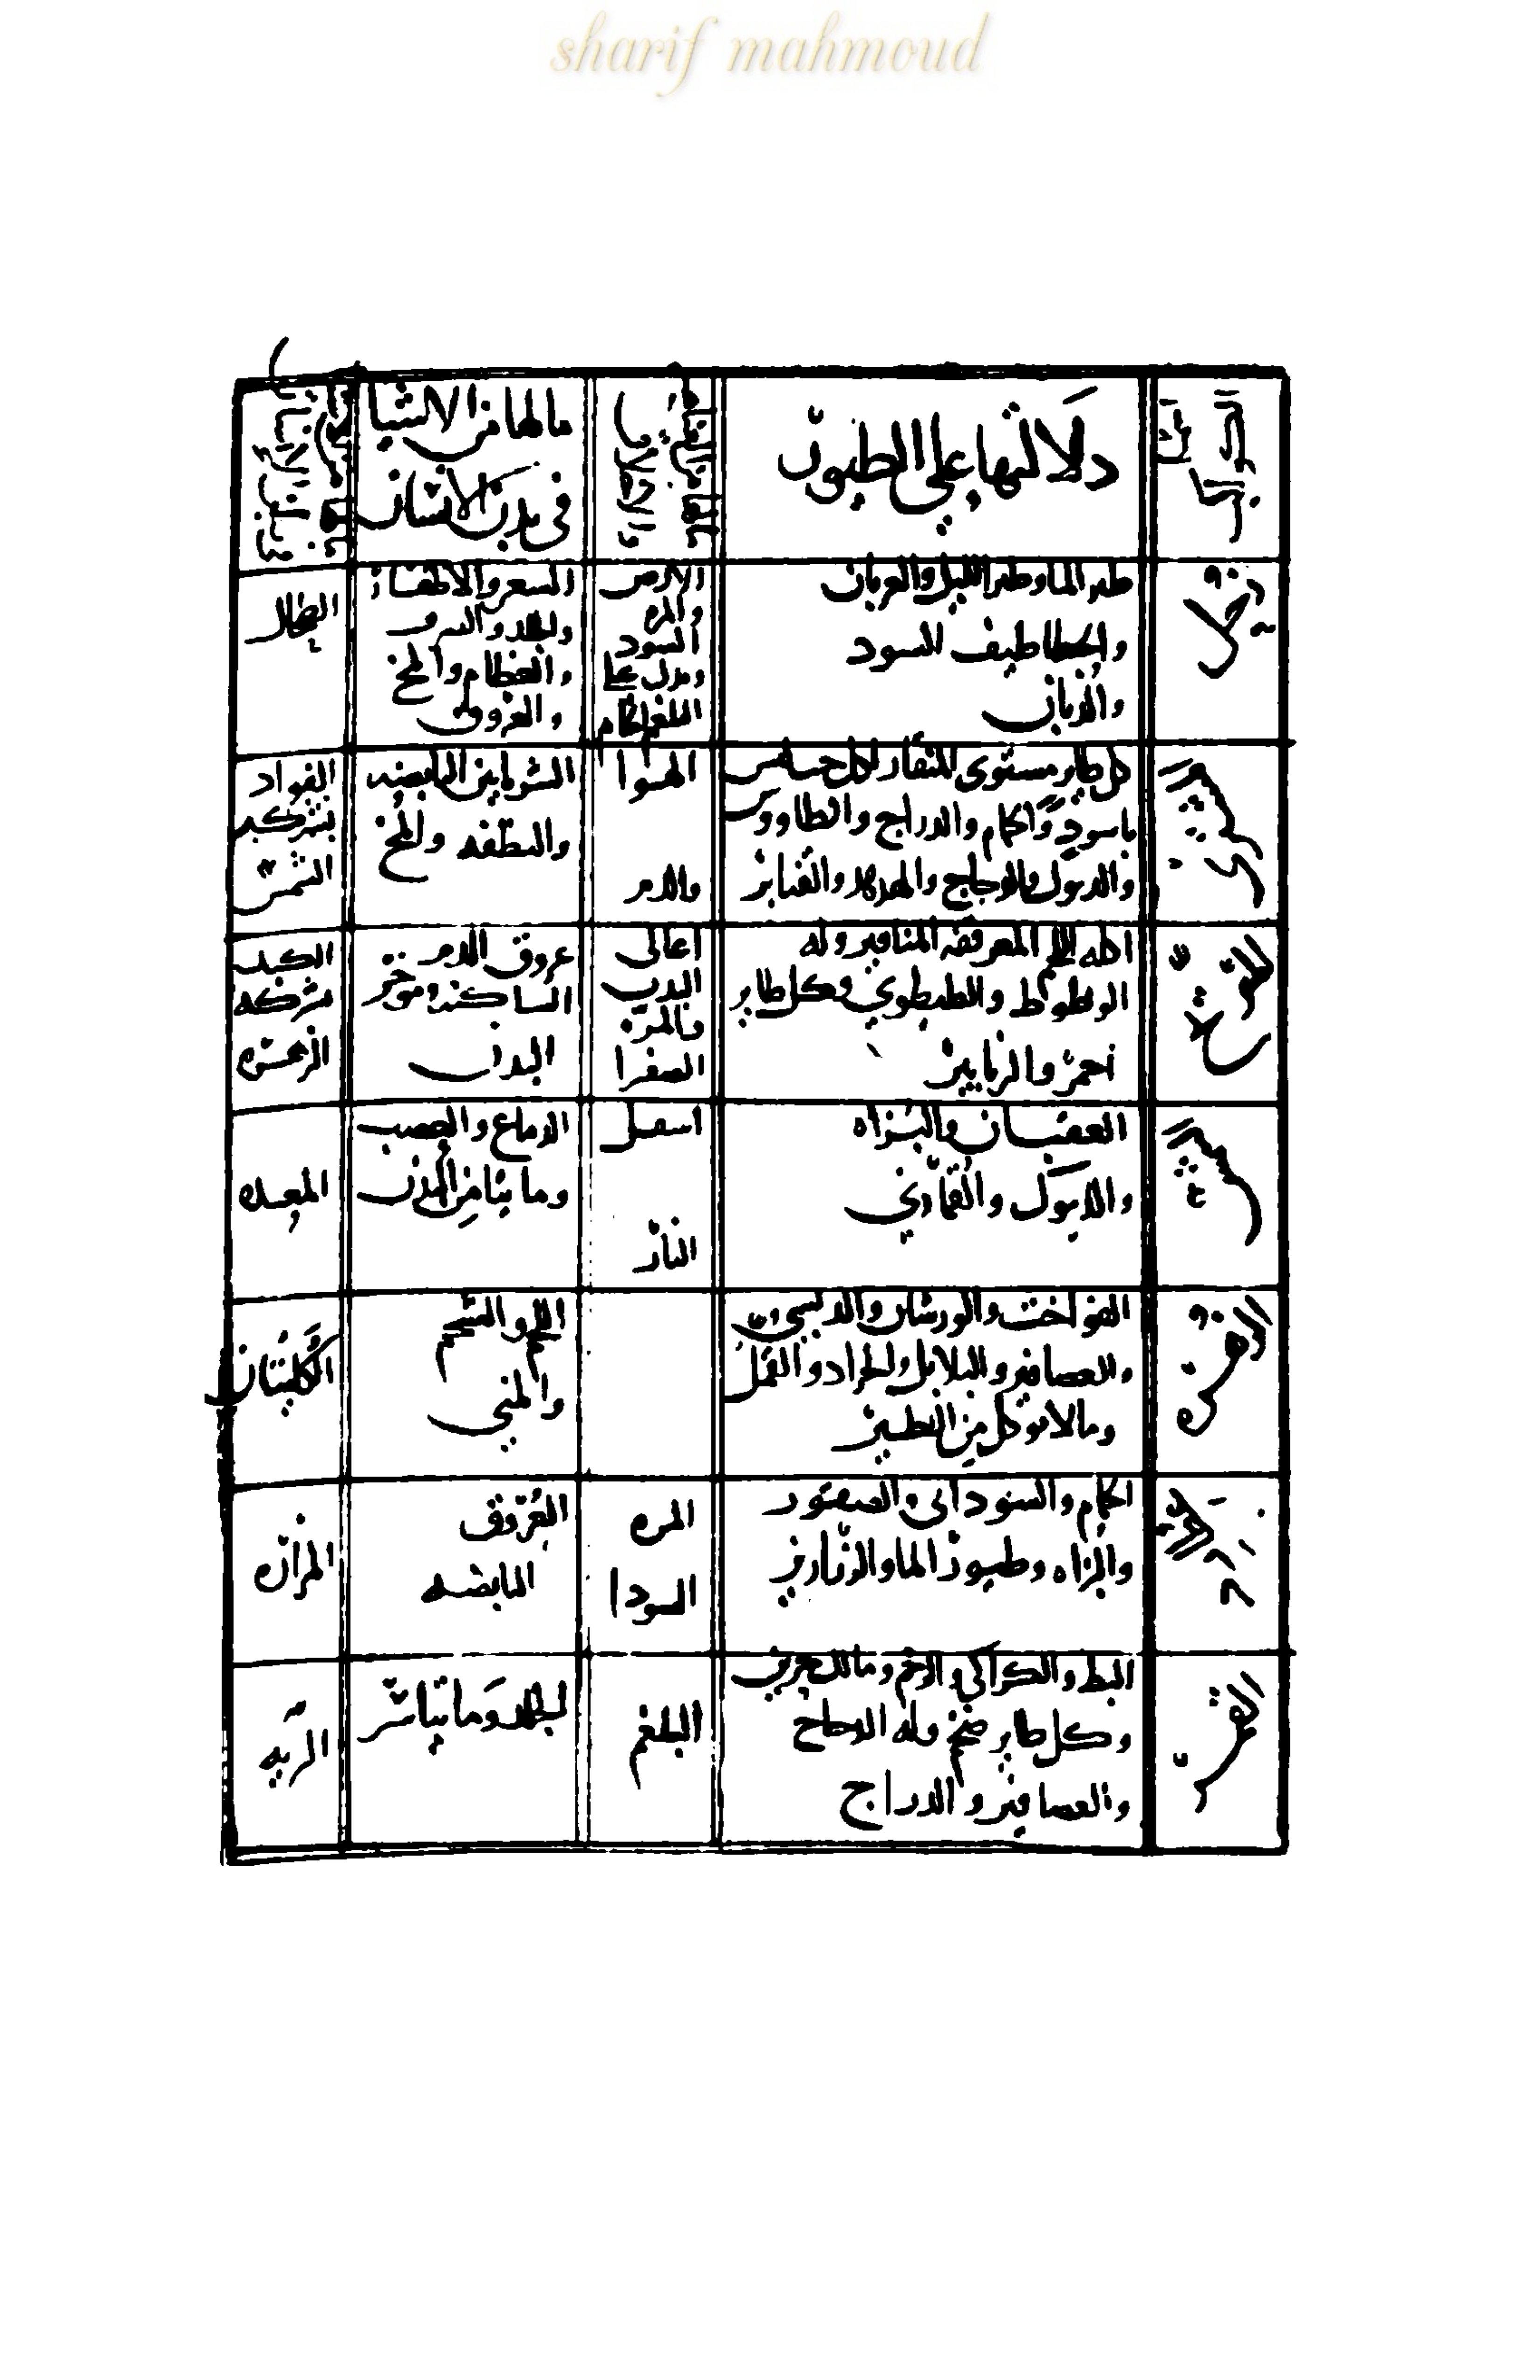 sharif mahmoud
دلالتها على الطيور
مالها من الاشيا
في بدن الانسان
زحل
طير الما وطير الليل والغربان
والخطاطيف السود
والذبان
الارض
والمره
السود
البلغم الخام
الشعر والاظفار
والجلد
والعظام والمخ
والعروق
الطحال
المشتري
كل طاير مستوى المنقار لاكل حب ليس
باسود والحمام والدراج والطاووس
والديوك والدجاج والهدهد والقنابر
الهوا
والدم
الشرايين النابضه
والنطفه والمخ
الفواد
بشركه
الشمس
المريخ
اكله اللحم المعوفه المناقير وله
الوطوط والطيطوي وكل طاير
احمر والزنابير
اعالى
والمره
الصفرا
عروق الدم
الساكنه وموخر
البدن
الكبد
بشركه
الزهره
الشمس
العقبان والبزاه
والديوك والقماري
اسفل
النار
الدماغ والعصب
وما
المعده
الزهره
الفواخت والورشان والدبسي
والعصافير والبلابل والجراد والقمل
وما لا يوكل من الطير
اللحم والشحم
والمني
الكليتان
عطارد
الحمام والسوداني والصقور
والبزاه وطيور الما والزرازير
المره
السودا
العروق
النابضه
المراره
القمر
البط والكراكي والرخم ومالك حزين
وكل طاير ضخم وله الدجاج
والعصافير والدراج
البلغم
الجلد وما يباشر
الريه